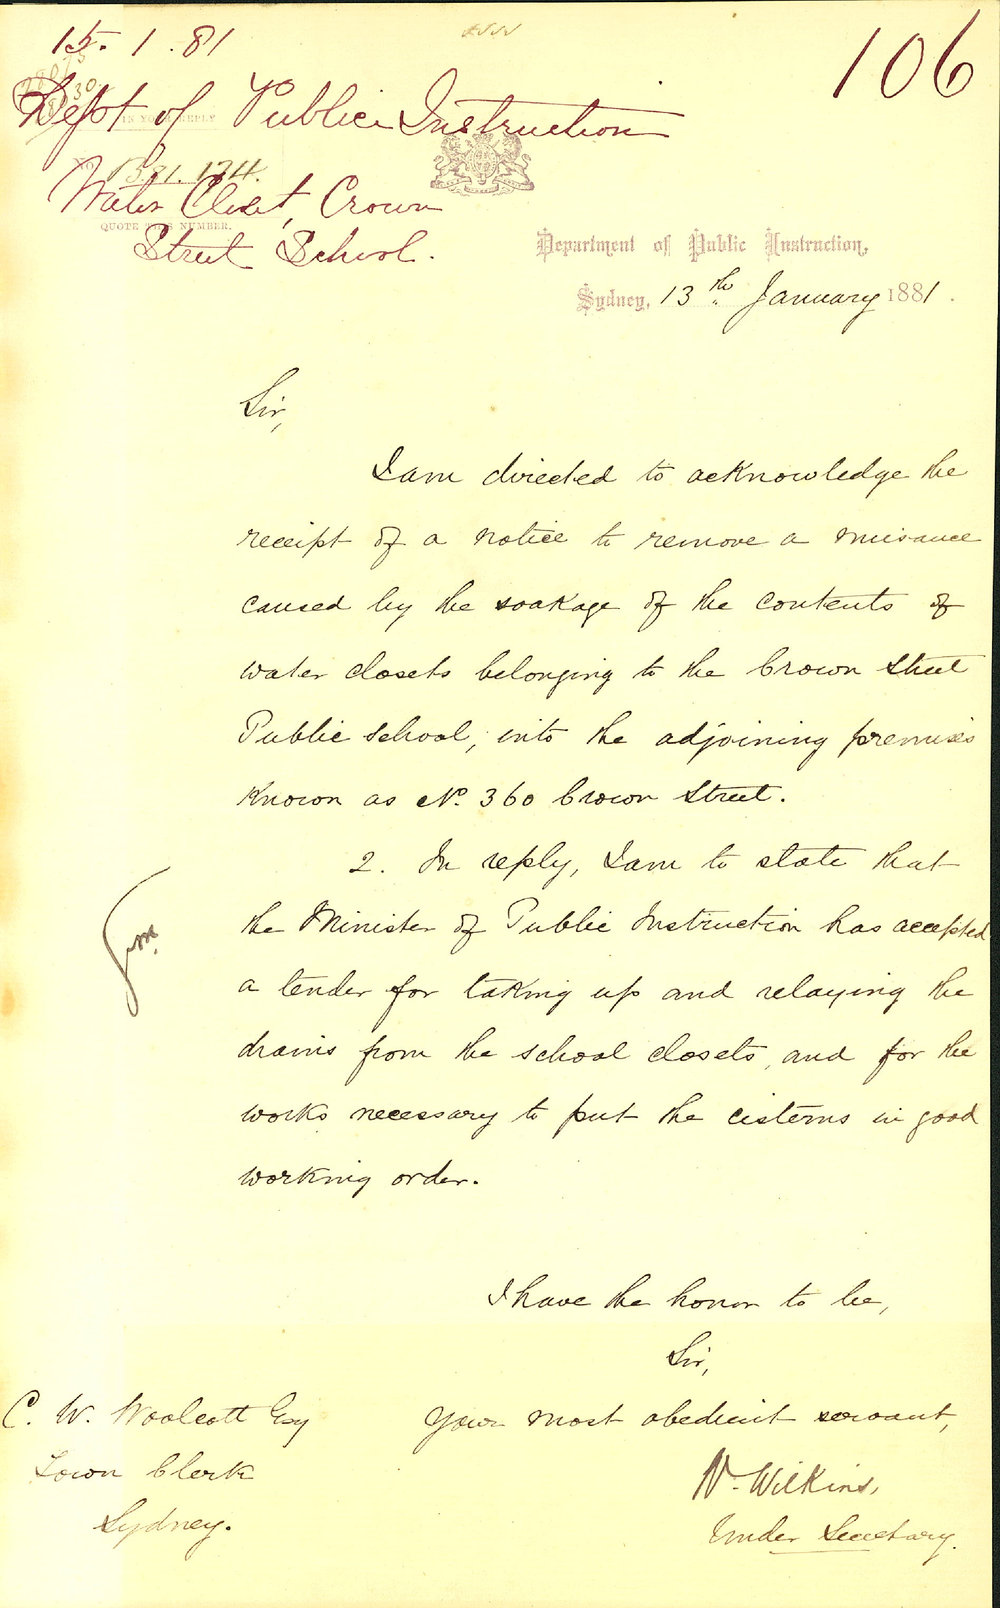 15. 1. 81
106
Dept of Public Instruction
IN YOUR REPLY
Water Closet, Crown
QUOTE THIS NUMBER.
Street School.
Department of Public Instruction,
Sydney, 13th January 1881.
Sir,
I am directed to acknowledge the
receipt of a notice to remove a nuisance
caused by the soakage of the contents of
water closets belonging to the Crown Street
Public School, into the adjoining premises
known as No. 360 Crown Street.
2. In reply, I am to state that
the Minister of Public Instruction has accepted
a tender for taking up and relaying the
drains from the school closets, and for the
works necessary to put the cisterns in good
working order.
I have the honor to be,
Sir,
Your most obedient servant,
W. Wilkins,
Under Secretary.
C. W. Woolcott Esq
Town Clerk
Sydney.